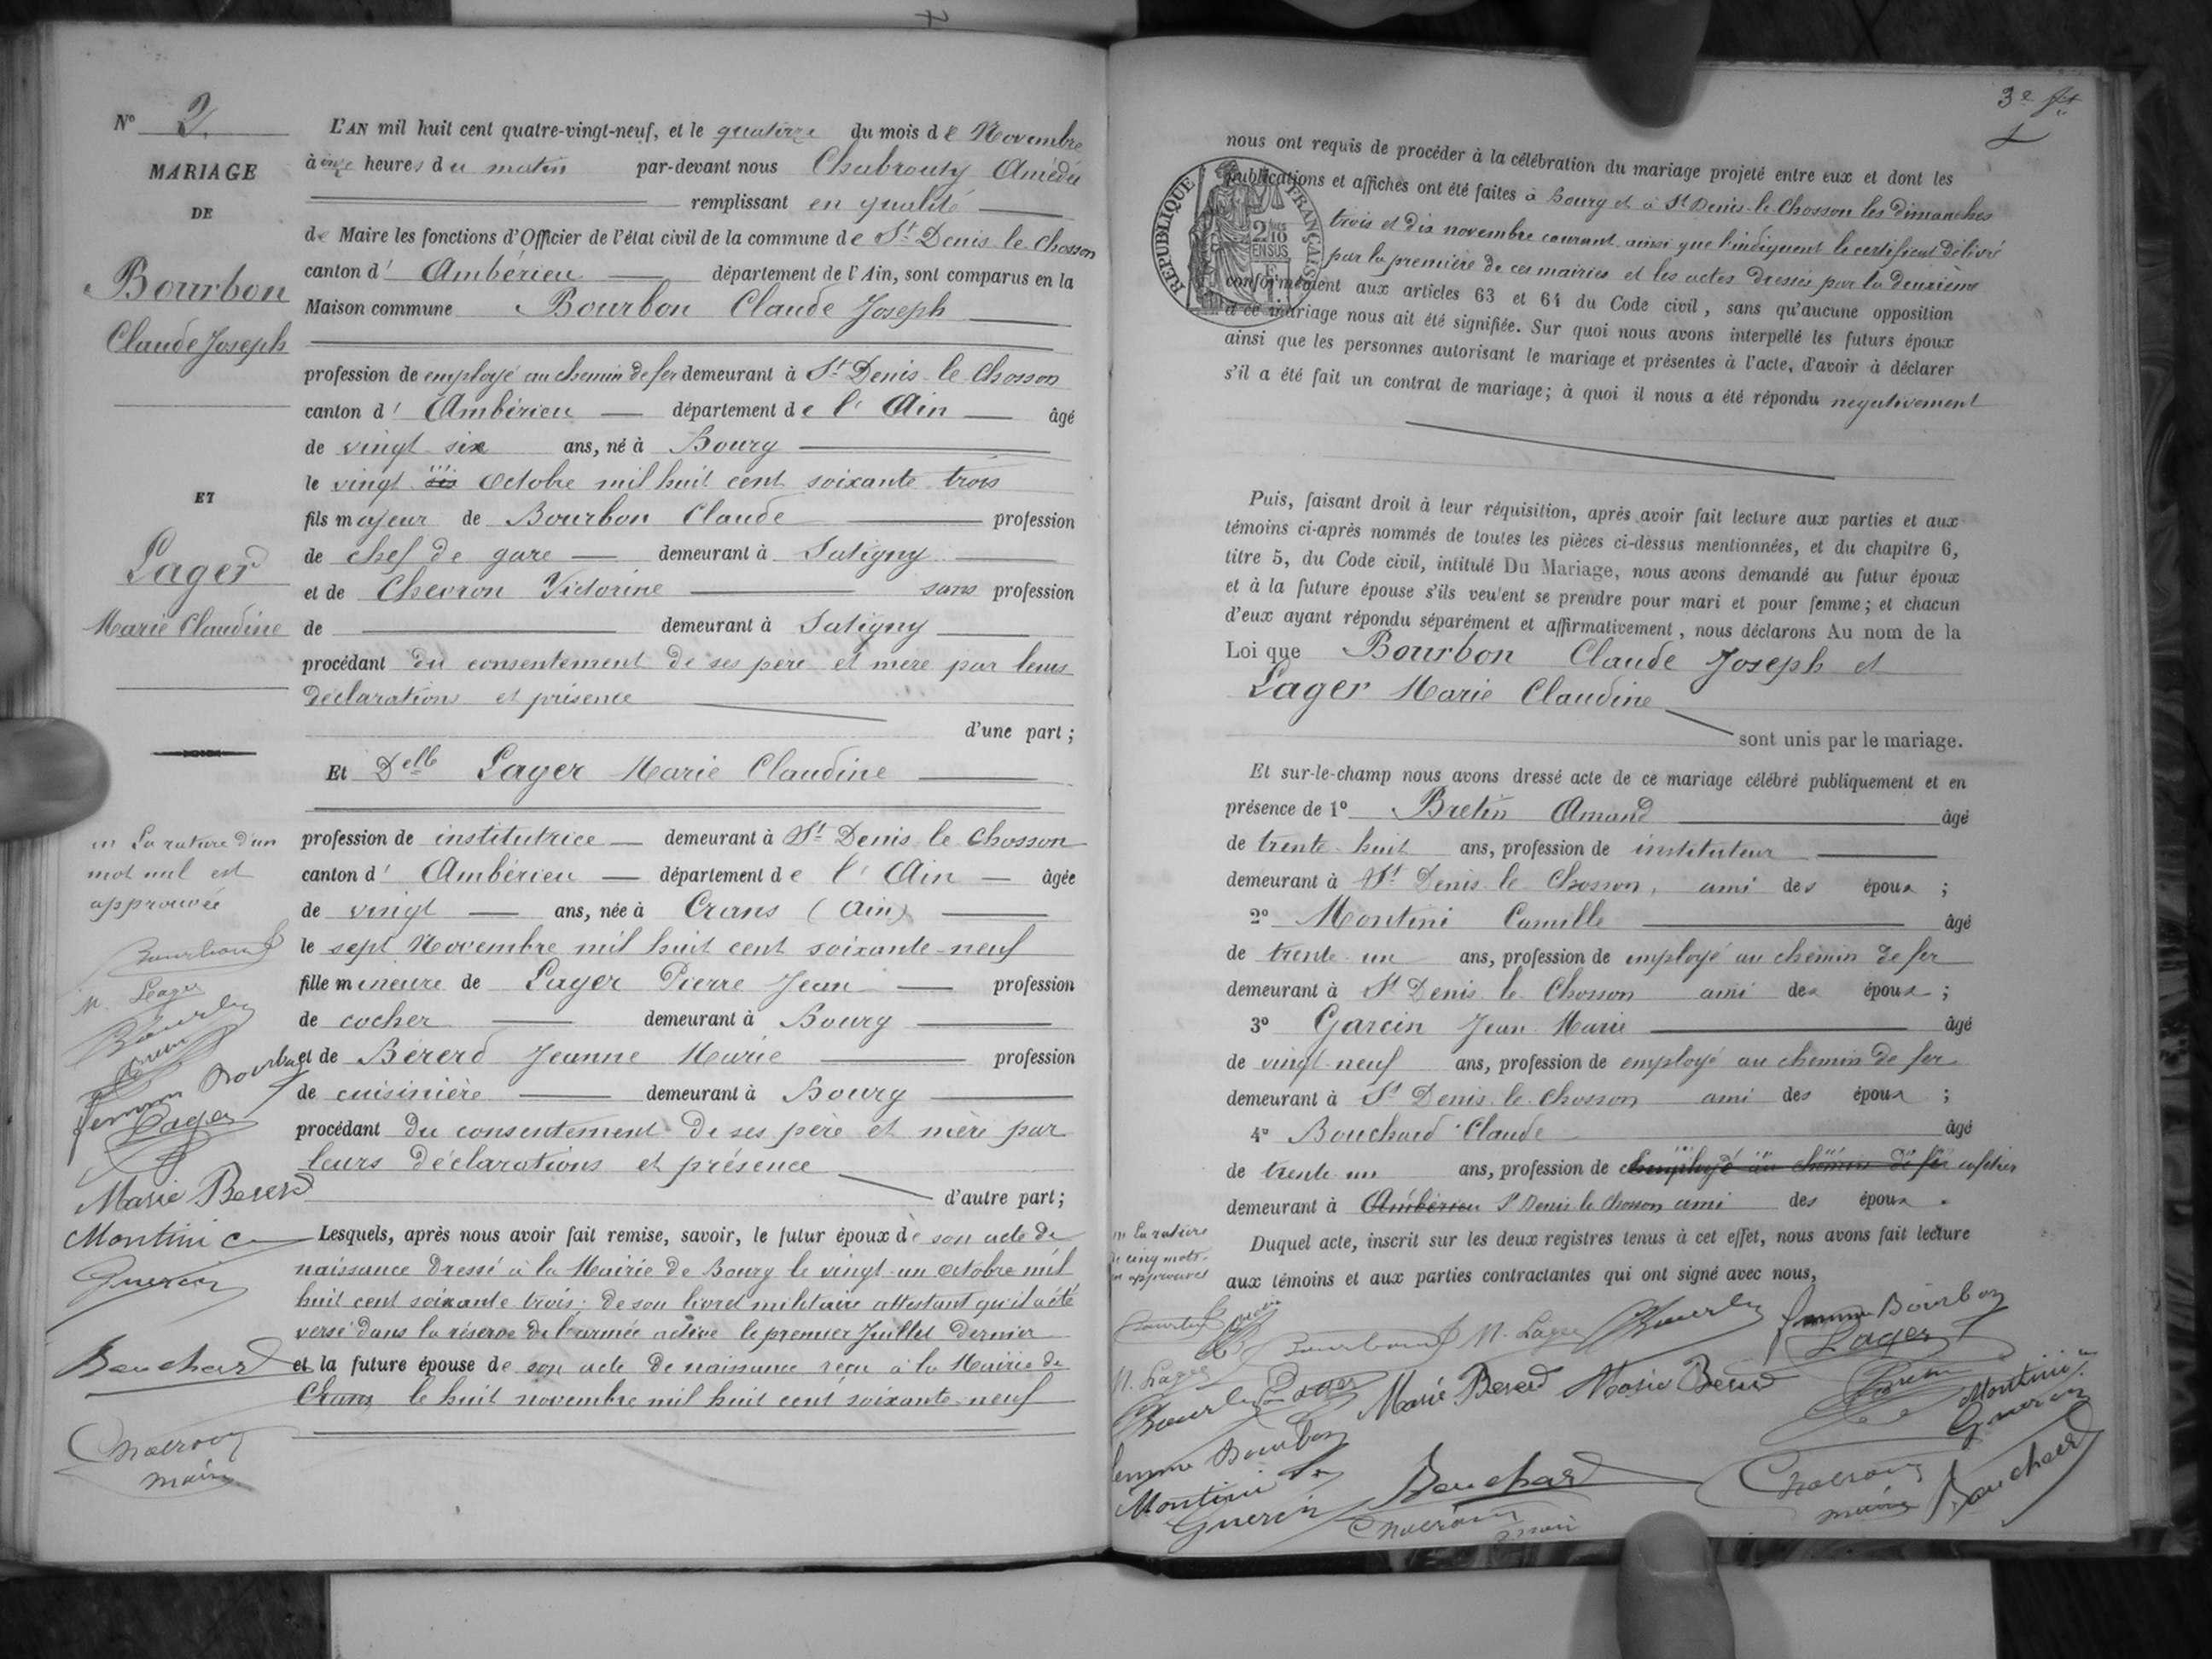 N° 2.
MARIAGE
DE
Bourbon
Claude Joseph
ET
Lager
Marie Claudine
L'AN mil huit cent quatre-vingt-neuf, et le quatorze du mois de Novembre
à onze heures du matin par-devant nous Chabrouty Amédée
remplissant en qualité
de Maire les fonctions d'Officier de l'état civil de la commune de St Denis le Chosson
canton d' Ambérieu département de l'Ain, sont comparus en la
Maison commune Bourbon Claude Joseph
profession de employé au chemin de fer demeurant à St Denis le Chosson
canton d' Ambérieu département de l'Ain âgé
de vingt six ans, né à Bourg
le vingt six Octobre mil huit cent soixante trois
fils majeur de Bourbon Claude profession
de chef de gare demeurant à Satigny
et de Chevron Victorine sans profession
de demeurant à Satigny
procédant du consentement de ses père et mère par leurs
déclarations et présence
d'une part ;
Et Delle Lager Marie Claudine
profession de institutrice demeurant à St Denis le Chosson
canton d' Ambérieu département de l'Ain âgée
de vingt ans, née à Crans (Ain)
le sept Novembre mil huit cent soixante-neuf
fille mineure de Lager Pierre Jean profession
de cocher demeurant à Bourg
et de Bererd Jeanne Marie profession
de cuisinière demeurant à Bourg
procédant du consentement de ses père et mère par
leurs déclarations et présence
d'autre part ;
Lesquels, après nous avoir fait remise, savoir, le futur époux de son acte de
naissance dressé à la Mairie de Bourg le vingt-un Octobre mil
huit cent soixante trois ; de son livret militaire attestant qu'il a été
versé dans la réserve de l'armée active le premier Juillet dernier
et la future épouse de son acte de naissance reçu à la Mairie de
Crans le huit novembre mil huit cent soixante-neuf
(1) La rature d'un
mot nul est
approuvée
Bourbon
M. Lager
femme Bourbon
Lager
Marie Bererd
Montini C
Guercin
Bouchard
Chabrouty
maire
3e ft
nous ont requis de procéder à la célébration du mariage projeté entre eux et dont les
publications et affiches ont été faites à Bourg et à St Denis-le-Chosson les dimanches
trois et dix novembre courant ainsi que l'indiquent le certificat délivré
par la première de ces mairies et les actes dressés par la deuxième
conformément aux articles 63 et 64 du Code civil, sans qu'aucune opposition
à ce mariage nous ait été signifiée. Sur quoi nous avons interpellé les futurs époux
ainsi que les personnes autorisant le mariage et présentes à l'acte, d'avoir à déclarer
s'il a été fait un contrat de mariage ; à quoi il nous a été répondu négativement
REPUBLIQUE FRANÇAISE
2/10
EN SUS
Puis, faisant droit à leur réquisition, après avoir fait lecture aux parties et aux
témoins ci-après nommés de toutes les pièces ci-dessus mentionnées, et du chapitre 6,
titre 5, du Code civil, intitulé Du Mariage, nous avons demandé au futur époux
et à la future épouse s'ils veulent se prendre pour mari et pour femme ; et chacun
d'eux ayant répondu séparément et affirmativement, nous déclarons Au nom de la
Loi que Bourbon Claude Joseph et
Lager Marie Claudine
sont unis par le mariage.
Et sur-le-champ nous avons dressé acte de ce mariage célébré publiquement et en
présence de 1° Bretin Amand âgé
de trente-huit ans, profession de instituteur
demeurant à St Denis le Chosson, ami des époux ;
2° Montini Camille âgé
de trente-un ans, profession de employé au chemin de fer
demeurant à St Denis le Chosson ami des époux ;
3° Garcin Jean Marie âgé
de vingt-neuf ans, profession de employé au chemin de fer
demeurant à St Denis-le-Chosson ami des époux ;
4° Bouchard Claude âgé
de trente-un ans, profession de employé au chemin de fer cafetier
demeurant à Ambérieu St Denis le Chosson ami des époux.
Duquel acte, inscrit sur les deux registres tenus à cet effet, nous avons fait lecture
aux témoins et aux parties contractantes qui ont signé avec nous,
(1) La rature
de cinq mots
approuvés
Bourbon M. Lager femme Bourbon
Lager
M. Lager
Lager Marie Bererd Marie Bererd
Montini C
Guercin
femme Bourbon
Montini C
Guercin
Bouchard
Chabrouty
maire
Chabrouty
maire
Bouchard